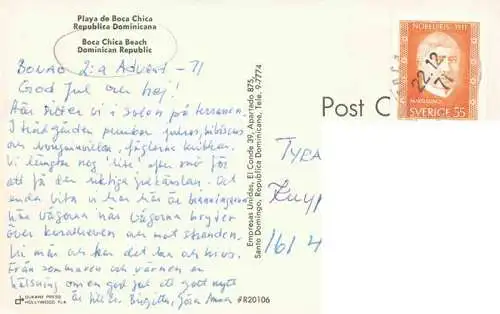 Playa de Boca Chica
Republica Dominicana
Boca Chica Beach
Dominican Republic
Bonao 2:a Advent -71
God jul och hej!
Här sitter vi i solen på terrassen.
I trädgården prunkar julros, hibiscus
och bougainvillea, fåglarna kvittrar.
Vi längtar nog 'lite' efter snö för
att få den riktiga julkänslan. Det
enda vita vi har här är bränningarna
när vågorna når vågorna bryter
över korallreven och mot stranden.
Vi mår och har det bra och
Från sommaren och värmen en
hälsning om en god jul ett gott nytt
år Birgitta, Göra Anna
DUKANE PRESS
HOLLYWOOD FLA.
#R20106
Empresas Unidas, El Conde 39, Apartado 875,
Santo Domingo, Republica Dominicana, Tels. 9-7774
Post C
NOBELPRIS 1911
SVERIGE 55
22.12
71
TYRA
1614